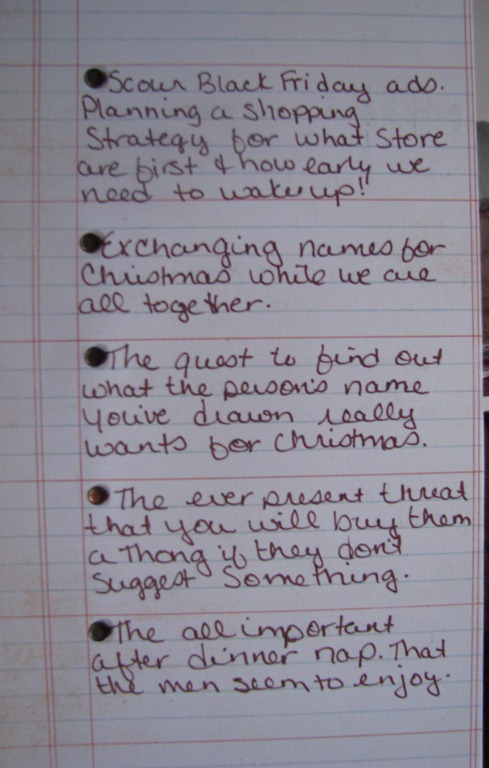 Scour Black Friday ads.
Planning a shopping
Strategy for what store
are first & how early we
need to wake up!
Exchanging names for
Christmas while we are
all together.
The quest to find out
what the person's name
You've drawn really
wants for Christmas.
The ever present threat
that you will buy them
a Thong if they don't
suggest something.
The all important
after dinner nap. That
the men seem to enjoy.